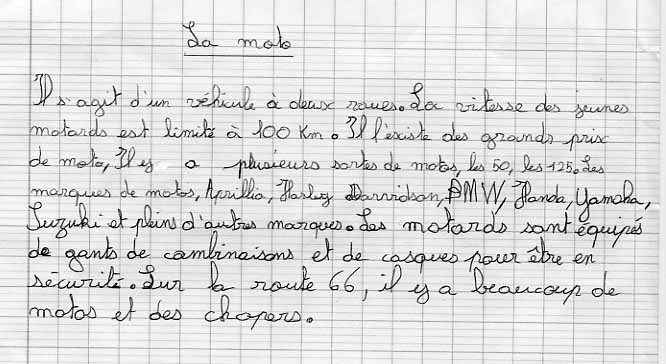 La moto
Il s'agit d'un véhicule à deux roues. La vitesse des jeunes
motards est limité à 100 Km. Il l'éxiste des grands prix
de moto, Il y a plusieurs sortes de motos, les 50, les 125. Les
marques de motos, Aprillia, Harley Darvidson, BMW, Handa, Yamaha,
Suzuki et pleins d'autres marques. Les motards sont équipés
de gants de combinaisons et de casques pour être en
sécurité. Sur la route 66, il y a beaucoup de
motos et des chopers.